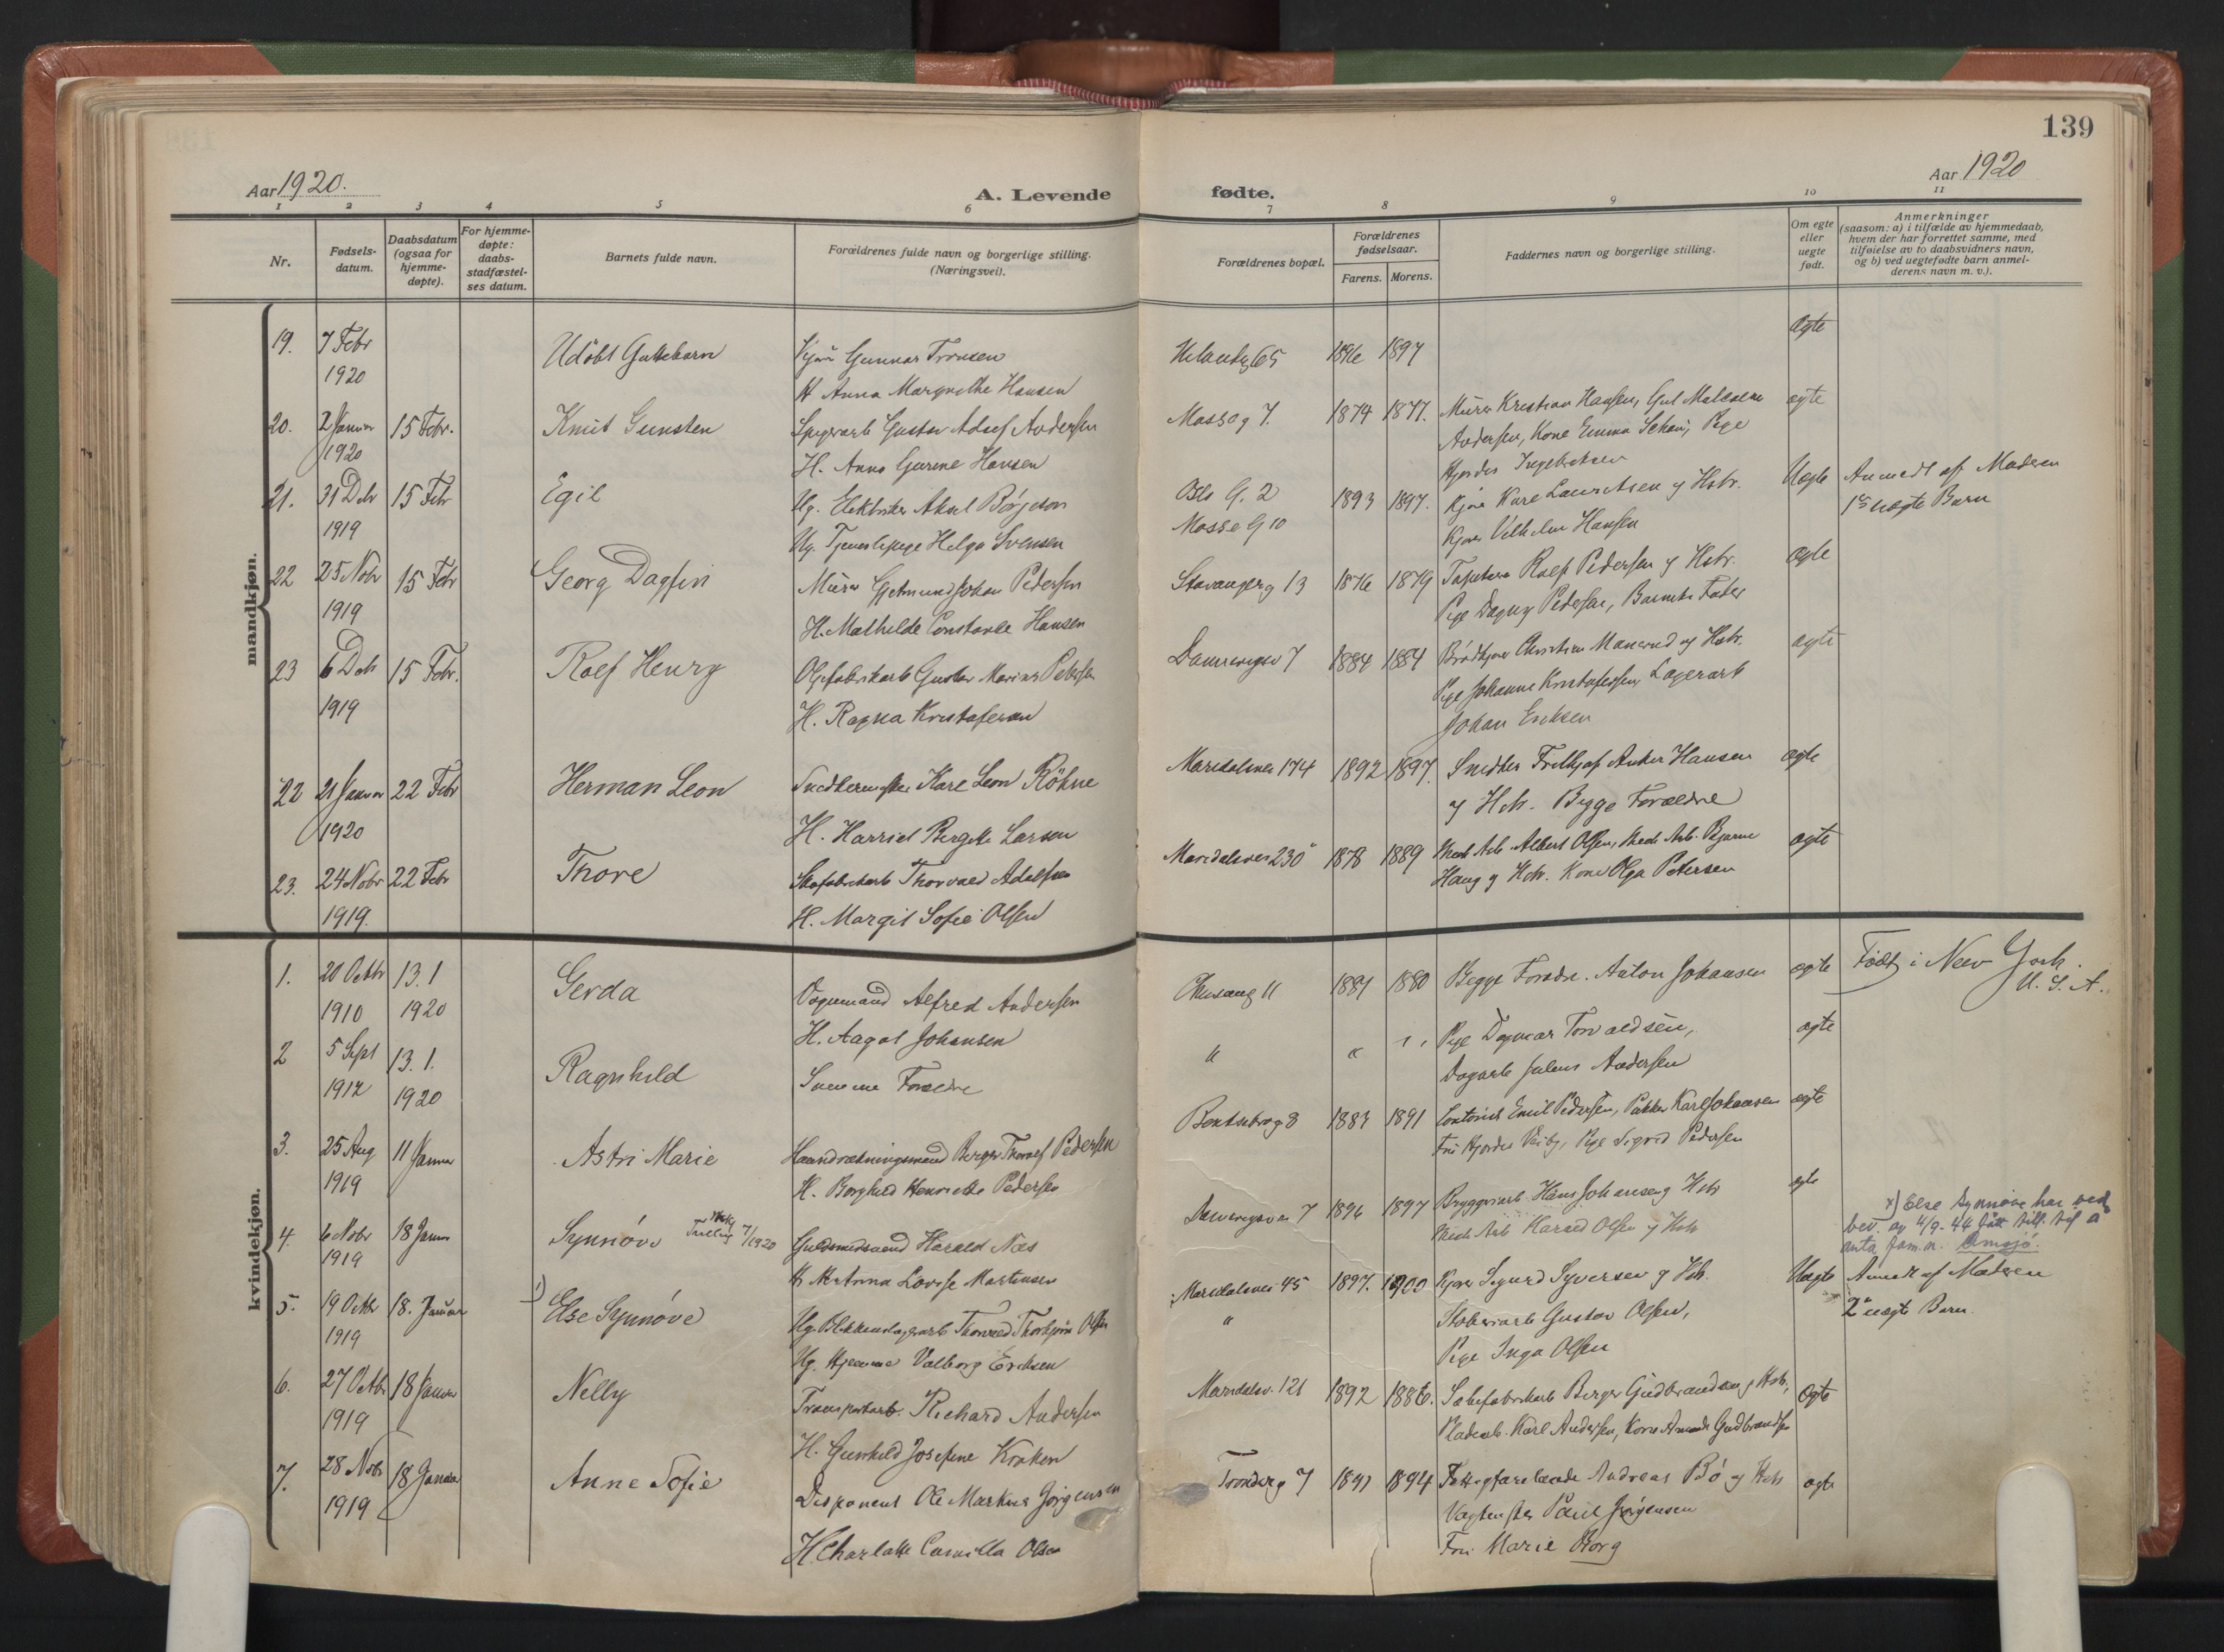 139
Aar 1920.
A. Levende
fødte.
Aar 1920
1 2 3 4 5 6 7 8 9 10 11
Nr.
Fødsels-
datum.
Daabsdatum
(ogsaa for
hjemme-
døpte).
For hjemme-
døpte:
daabs-
stadfæstel-
ses datum.
Barnets fulde navn.
Forældrenes fulde navn og borgerlige stilling.
(Næringsvei).
Forældrenes bopæl.
Forældrenes
fødselsaar.
Farens. Morens.
Faddernes navn og borgerlige stilling.
Om egte
eller
uegte
født.
Anmerkninger
(saasom: a) i tilfælde av hjemmedaab,
hvem der har forrettet samme, med
tilføielse av to daabsvidners navn,
og b) ved uegtefødte barn anmel-
derens navn m. v.).
mandkjøn.
19. 7 Febr Udöbt Guttebarn Gunnar Tronsen 65 1896 1897 ægte
1920 H Anna Margrethe Hansen
20. 2 Januar 15 Febr. Knut Gunsten Gustav Adolf Andersen Mosseg 7. 1874 1877. Murer Kristian Hansen, ægte
1920 H. Anna Hansen Andersen, Kone Emma Pige
Hjordis
21. 31 Deb 15 Febr Egil Ug. Aksel Oslo G. 2 1893 1897. Kjør Kare Lauritsen og Hstr. Uegte Anmeldt af Moderen
1919 Ug. Tjenestepige Helga Svensen Mosse G 10 Kjør Vilhelm Hansen 1ste uegte Barn
22 25 Nobr 15 Febr Georg Dagfin Murer Johan Pedersen Stavangerg 13 1876 1879 Rolf Pedersen og Hstr. ægte
1919 H. Mathilde Constanse Hansen Pige Dagny Pedersen, Barnets Fader
23 6 Deb 15 Febr. Rolf Henry Gustav Marius Petersen Dannevigsv 7 1884 1884 Christian og Hstr. ægte
1919 H. Ragna Kristofersen Pige Johanne Kristofersen, Lagerarb
Johan Eriksen
22 21 Januar 22 Febr Herman Leon Snedkermester Karl Leon Röhne Maridalsvei 174 1892 1897. Snedker Fridtjof Anker Hansen ægte
1920 H. Harriet Bergitte Larsen og Hstr. Begge Forældre
23. 24 Nobr 22 Febr Thore Skofabrikarb Thorvald Adolfsen Maridalsvei 230 1878 1889 Mek Arb. Albert Olsen, Mek Arb. Bjarne ægte
1919. H. Margit Sofie Olsen Haug og Hstr. Kone Olga Petersen
kvindekjøn.
1. 20 Octbr 13.1 Gerda Vognmand Alfred Andersen 11 1881 1880 Begge Forældre. Anton Johansen ægte Født i New York.
1910 1920 H. Aagot Johansen U. S. A.
2 5 Sept 13.1. Ragnhild Samme Forældre " " " Pige Dagmar Torvaldsen, ægte
1912 1920 Dagarb Julius Andersen
3. 25 Aug 11 Januar Astri Marie Haandrækningsmand Birger Thoralf Pedersen Bentsebrog 8 1883 1891 Kontorist Emil Pedersen, Pakker Karl Johansen ægte
1919 H. Borghild Henriette Pedersen Fru Hjordis Pige Sigrid Pedersen
4. 6 Nobr 18 Januar Synnöve Tvilling 7/1920 Guldsmedsvend Harald Næs Dannevigsvei 7 1896 1897 Bryggeriarb. Hans Johansen og Hstr ægte
1919 H. Anna Lovise Martinsen Mek Arb Harald Olsen og Hstr
x) Else Synnøve har ved
bev. av 4/9. 44 fått till. til å
anta fam.n. Amsjö.
5. 19 Octbr 18. Januar 1) Else Synnöve Ug. Blikkenslagerarb Thorvald Thorbjørn Olsen Maridalsvei 45 1897. 1900 Kjører Sigurd Syversen og Hstr. Uegte Anmeldt af Moderen
1919 Ug. Hjemme Valborg Eriksen " Støberiarb Gustav Olsen, 2det uegte Barn.
Pige Inga Olsen
6. 27 Octbr 18 Januar Nelly Transportarb. Richard Andersen Maridalsv. 121 1892 1886. Sæbefabrikarb Birger Gudbrandsen og Hstr, ægte
1919 H. Gunhild Josefine Karl Andersen, Kone Amanda Gudbrandsen
7. 28 Nobr 18 Januar Anne Sofie Disponent Ole Markus Jörgensen Trondhg 7 1891 1894 Andreas Bö og Hstr ægte
1919 H Charlotte Camilla Olsen Vagtmester Paul Jörgensen
Fru Marie Borg